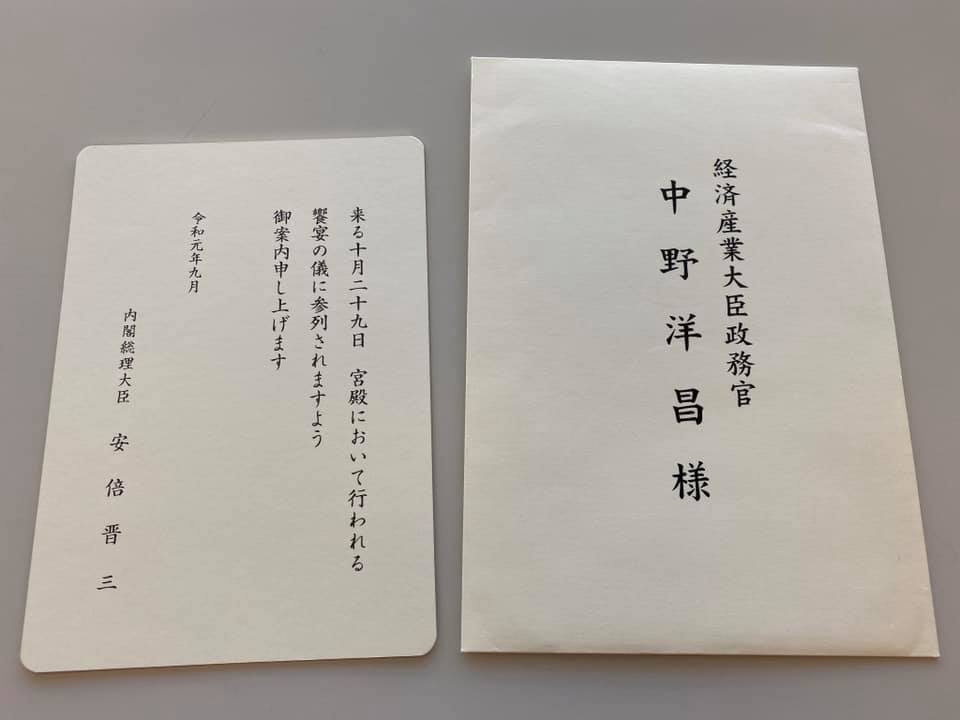 来る十月二十九日　宮殿において行われる
饗宴の儀に参列されますよう
御案内申し上げます
令和元年九月
内閣総理大臣　安倍晋三
経済産業大臣政務官
中野洋昌様